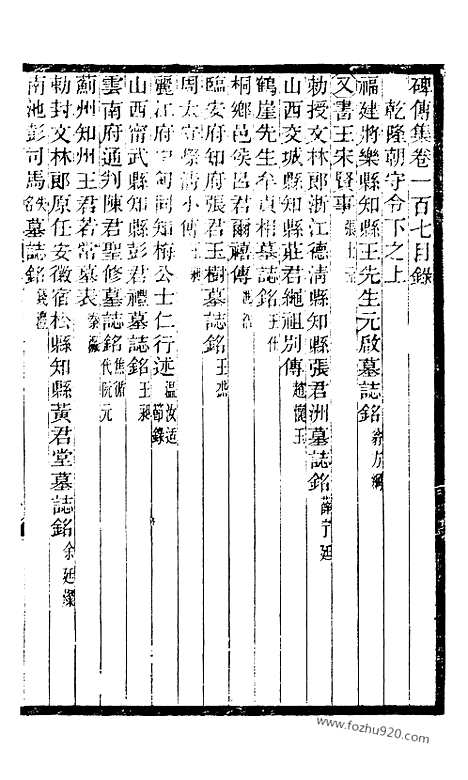 碑傳集卷一百七目錄
乾隆朝守令下之上
福建將樂縣知縣王先生元啟墓誌銘 翁方綱
又書王宋賢事 張士元
勅授文林郎浙江德清縣知縣張君洲墓誌銘 薛寧廷
山西交城縣知縣莊君繩祖別傳 趙懷玉
鶴崖先生牟貞相墓誌銘
桐鄉邑侯呂君爾禧傳
臨安府知府張君玉樹墓誌銘 王
周太守際清小傳 王
麗江府 同知梅公士仁行述 溫汝适節錄
山西甯武縣知縣彭君禮墓誌銘 王昶
雲南府通判陳君聖修墓誌銘 焦循代阮元
薊州知州王君若常墓表 秦瀛
勅封文林郎原任安徽宿松縣知縣黃君堂墓誌銘 余廷燦
南池彭司馬 墓誌銘
www.fozhu920.com